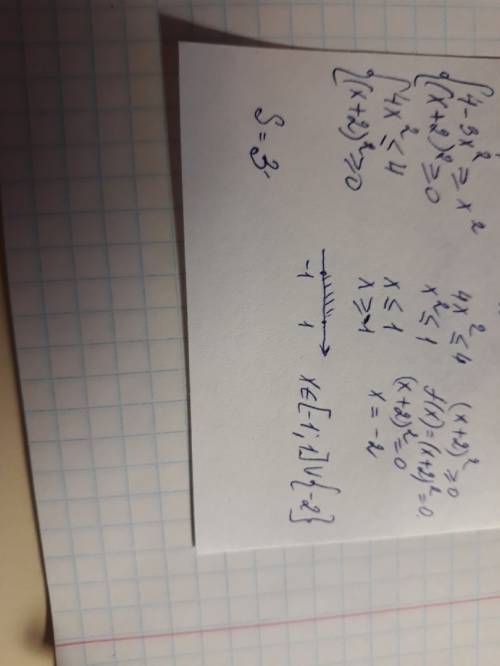 4-3x² ≥ x²
(x+2)² ≥ 0
4x² ≤ 4
(x+2)² ≥ 0
S = 3
4x² ≤ 4
x² ≤ 1
x ≤ 1
x ≥ -1
-1 1
(x+2)² ≥ 0
f(x) = (x+2)² = 0
(x+2)² = 0
x = -2
x∈[-1; 1]∪{-2}